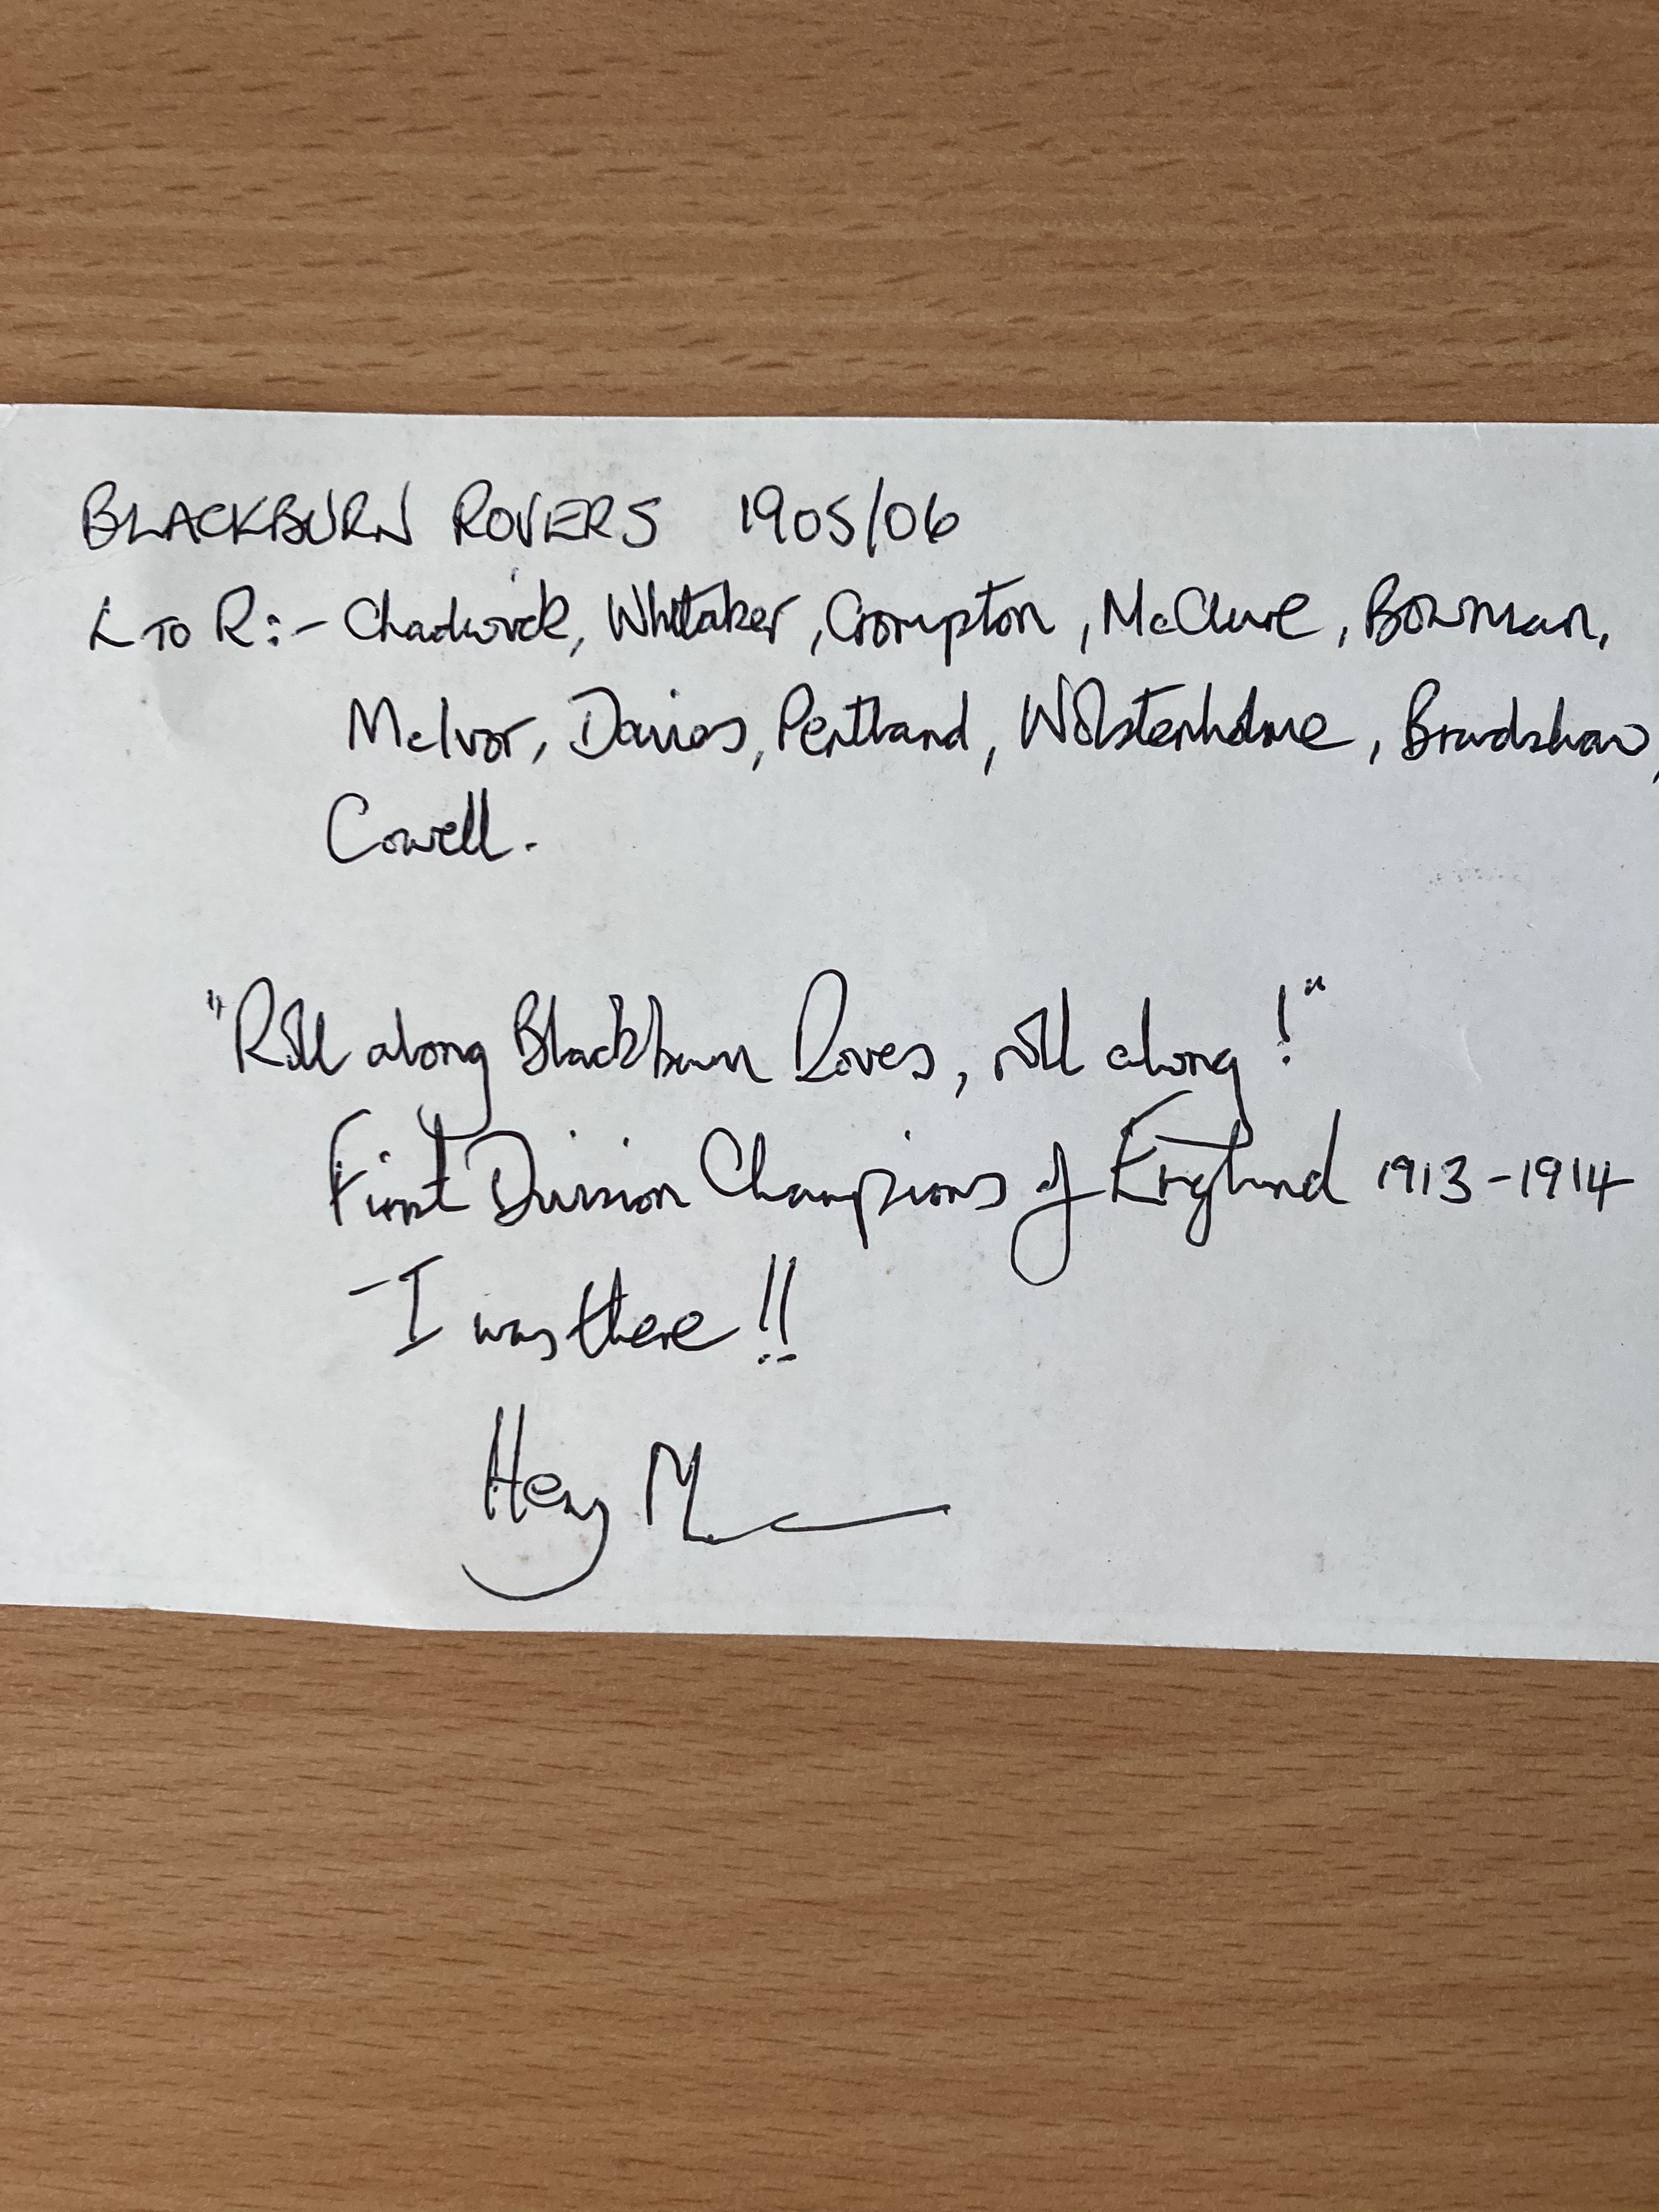 BLACKBURN ROVERS 1905/06
L TO R:- Chadwick, Whittaker, Crompton, McClure, Bowman,
McIvor, Davies, Pentland, Wolstenholme, Bradshaw,
Cowell.
"Roll along Blackburn Roves, roll along!"
First Division Champions of England 1913-1914
- I was there!!
Henry